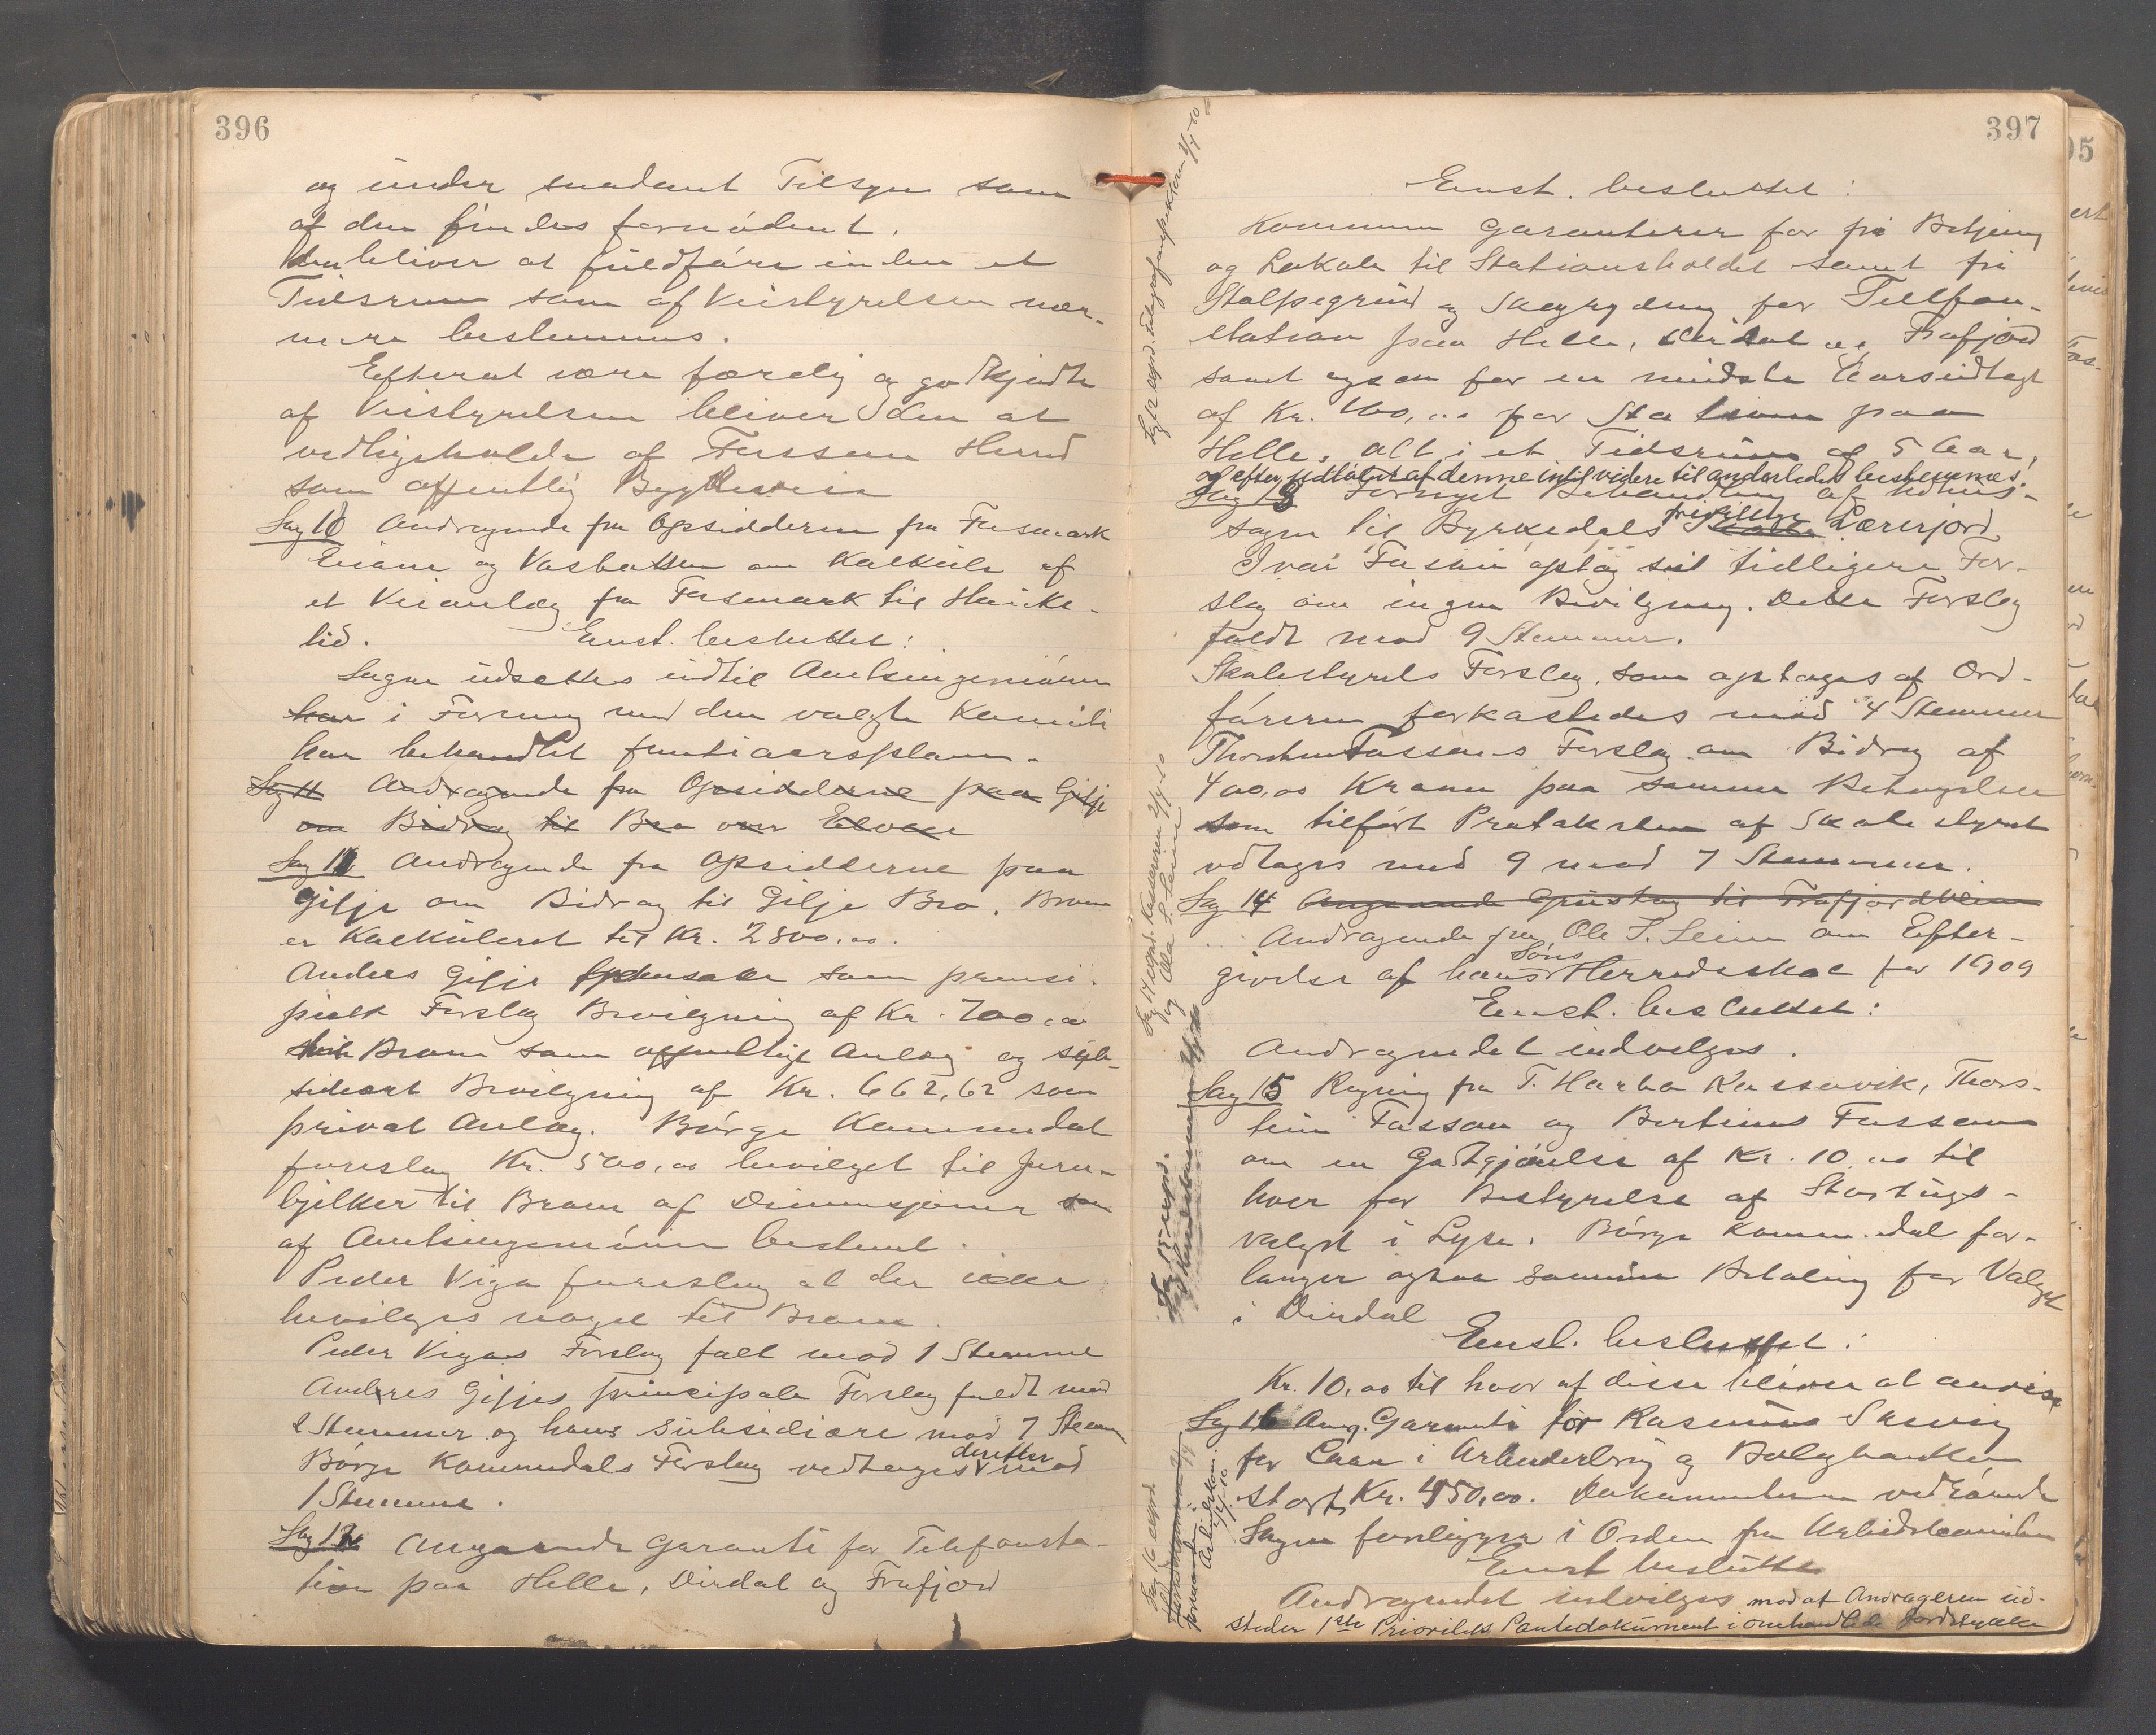 396
og under saadant Tilsyn som
af den findes fornødent.
Den bliver at fuldføre inden et
Tidsrum som af Veistyrelsen nær-
mere bestemmes.
Efterat være færdig og godkjendt
af Veistyrelsen bliver den at
vedligeholde af Fossan Herred
som offentlig Bygdevei
Sag 10 Andragende fra Opsidderne fra Fosmark
Eiane og Vasbotten om Kalkule af
et Veianlæg fra Fosmark til Hauke-
lid. Enst. besluttet:
Sagen udsættes indtil Amtsingeniøren
har i Forening med den valgte Komite
har behandlet femtiaarsplanen.
Sag 11 Andragende fra Opsidderne paa Gilje
om Bidrag til Bro over Elven
Sag 11 Andragende fra Opsidderne paa
Gilje om Bidrag til Gilje Bro. Broen
er Kalkuleret til Kr. 2800.00.
Andres Gilje som prinsi-
pielt Forslag Bevilgning af Kr. 700,00
til Broen som offentlige Anlæg og sub-
sidiært Bevilgning af Kr. 662,62 som
privat Anlæg. Børge Kommedal
foreslog Kr. 500,00 bevilget til Jern-
bjelker til Broen af Dimensjoner som
af Amtsingeniøren bestemt.
Peder Viga foreslog at der ikke
bevilges noget til Broen.
Peder Vigas Forslag falt mod 1 Stemme
Andres Giljes principale Forslag faldt mod
2 Stemmer og hans subsidiære mod 7 Stem
Børge Kommedals Forslag vedtoges derefter mod
1 Stemme.
Sag 12 Angaaende Garanti for Telefonsta-
tion paa Helle, Dirdal og Frafjord
397
Enst. besluttet:
Kommunen Garanterer for fri Betjening
og Lokale til Stationsholdet samt fri
Stolpegrund og Skogrydning for Telefon-
station paa Helle, Dirdal og Frafjord
samt ogsaa for en mindste Aarsindtægt
af Kr. 100,00 for Stationen paa
Helle, alt i et Tidsrum af 5 Aar,
og efter Udløbet af denne indtil videre til anderledes bestemmes.
Sag 13 Fornyet Behandling af Udhus-
sagen til Byrkedals frivillige Skole Lærerjord
Ivar Fusnii optog sit tidligere For-
slag om ingen Bevilgning. Dette Forslag
faldt mod 9 Stemmer.
Skolestyrets Forslag, som optoges af Ord-
føreren forkastedes mod 4 Stemmer
Thorstein Fossans Forslag om Bidrag af
400,00 Kroner paa samme Betingelser
som tilført Protokollen af Skolestyret
vedtages med 9 mod 7 Stemmer.
Sag 14 Angaaende Grustag til Frafjordveien
Andragende fra Ole S. Leine om Efter-
givelse af hans Søns Herredsskat for 1909
Enst. besluttet:
Andragendet indvilges.
Sag 15 Regning fra T. Harbo Rossavik, Thors-
tein Fossan og Bertinus Fossan
om en Godtgjørelse af Kr. 10.00 til
hver for Bestyrelse af Stortings-
valget i Lyse. Børge Kommedal for-
langer ogsaa samme Betaling for Valget
i Dirdal
Enst. besluttet:
Kr. 10,00 til hver af disse bliver at anvise
Sag 16 Ang. Garanti for Rasmus Skurvig
for Laan i Arbeiderbrug og Boligbanken
stort Kr. 450,00. Dokumenterne vedrørende
Sagen foreligger i Orden fra Arbeidskomiteen
Enst besluttet
Andragendet indvilges mod at Andrageren ud-
steder 1ste Prioritets Pantedokument i omhandlede Jordstykke
Sag 12 exp. Telegrafinspektøren 2/4-10
Sag 14 exp. Kasserern 2/4-10
og Ole S. Leine
Sag 15 exp.
Sag 16 exp.